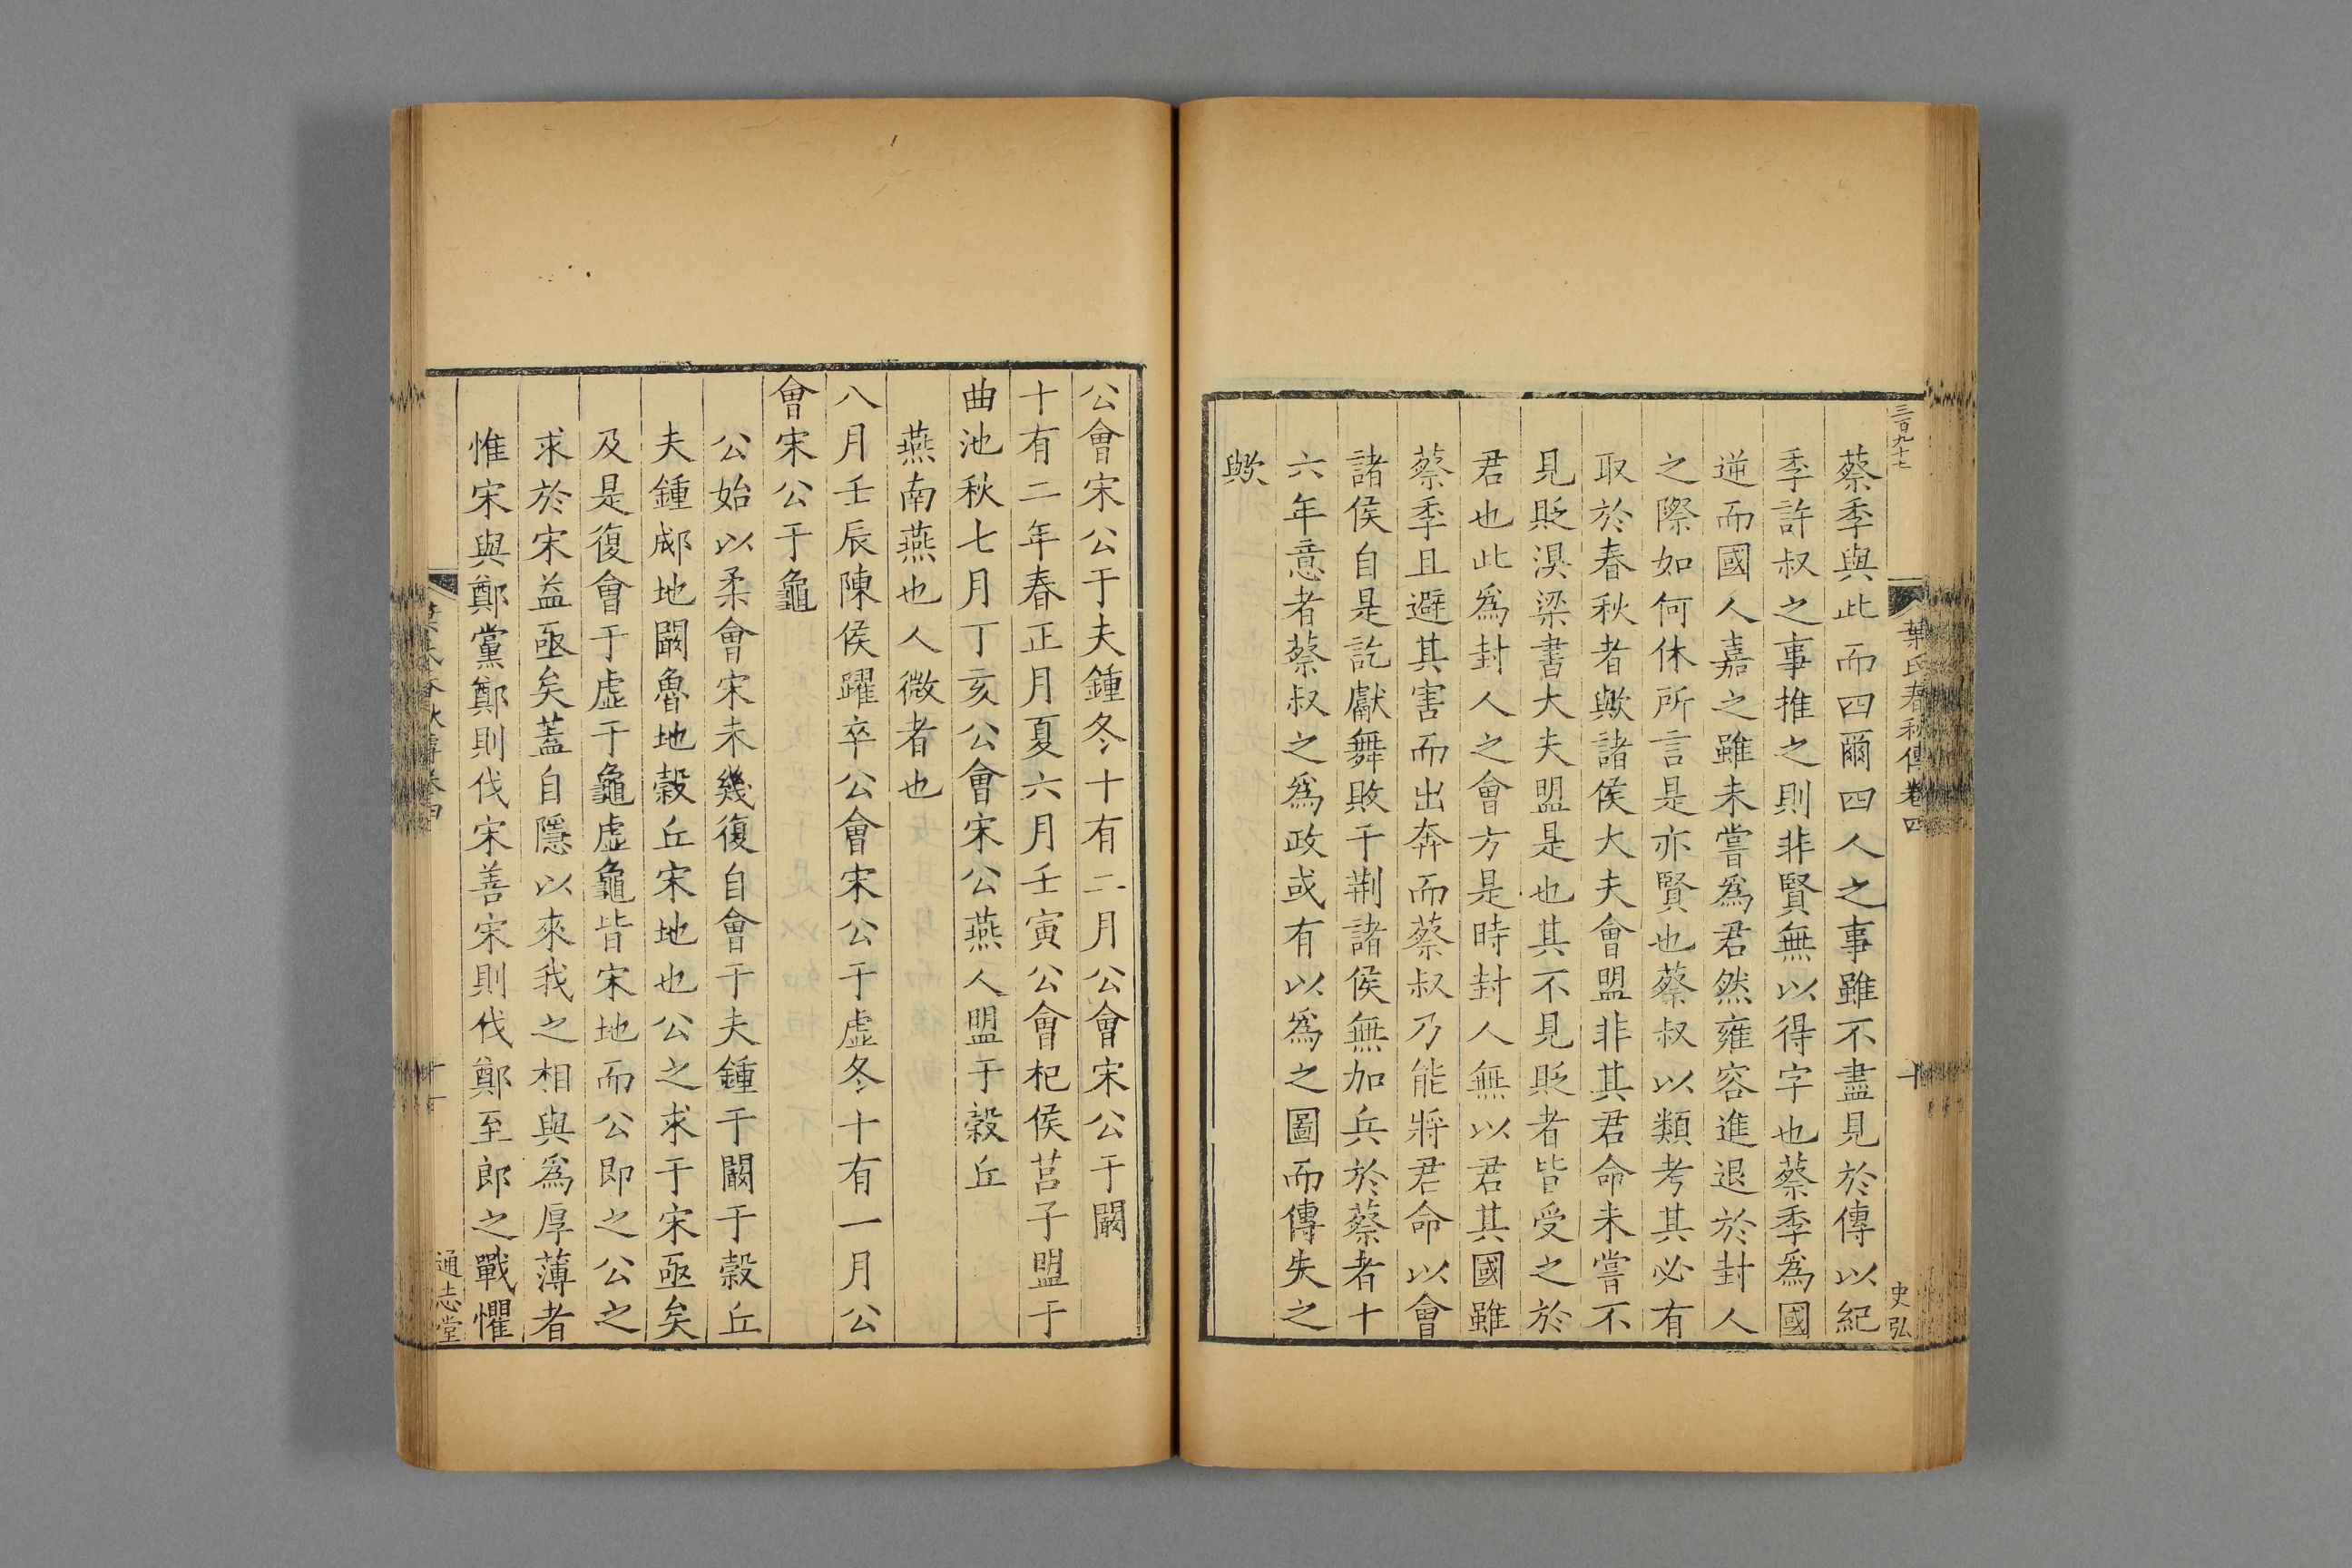 三百九十七
葉氏春秋傳卷四
十
史弘
蔡季與此而四爾四人之事雖不盡見於傳以紀
季許叔之事推之則非賢無以得字也蔡季爲國
逆而國人嘉之雖未嘗爲君然雍容進退於封人
之際如何休所言是亦賢也蔡叔以類考其必有
取於春秋者歟諸侯大夫會盟非其君命未嘗不
見貶湨梁書大夫盟是也其不見貶者皆受之於
君也此爲封人之會方是時封人無以君其國雖
蔡季且避其害而出奔而蔡叔乃能將君命以會
諸侯自是訖獻舞敗于荆諸侯無加兵於蔡者十
六年意者蔡叔之爲政或有以爲之圖而傳失之
歟
公會宋公于夫鍾冬十有二月公會宋公于闞
十有二年春正月夏六月壬寅公會杞侯莒子盟于
曲池秋七月丁亥公會宋公燕人盟于穀丘
燕南燕也人微者也
八月壬辰陳侯躍卒公會宋公于虛冬十有一月公
會宋公于龜
公始以柔會宋未幾復自會于夫鍾于闞于穀丘
夫鍾郕地闞魯地穀丘宋地也公之求于宋亟矣
及是復會于虛于龜虛龜皆宋地而公即之公之
求於宋益亟矣蓋自隱以來我之相與爲厚薄者
惟宋與鄭黨鄭則伐宋善宋則伐鄭至郎之戰懼
葉氏春秋傳卷四
十一
通志堂